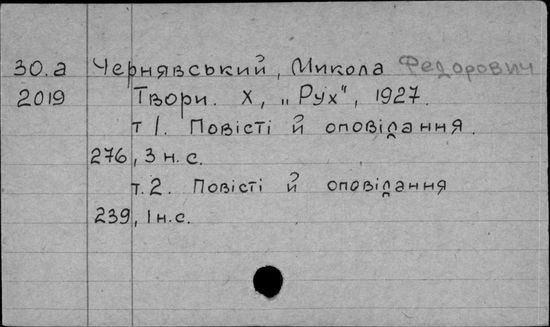 30.а Чернявський, Микола Федорович
2019 Твори. Х, „Рух", 1927.
т 1. Повісті й оповідання.
276, 3 н. с.
т. 2. Повісті й оповідання
239, 1 н. с.